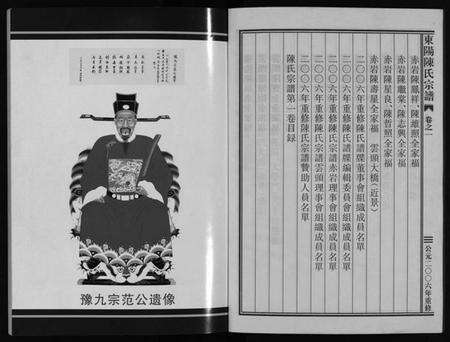 東陽陳氏宗譜 卷之一
公元二〇〇六年重修
赤岩陳鳳祥、陳維照全家福
赤岩陳繼棠、陳志興全家福
赤岩陳星良、陳哲照全家福
赤岩陳壽星全家福 雲頭大橋(近景)
二〇〇六年重修陳氏宗譜牒董事會組織成員名單
二〇〇六年重修陳氏宗譜牒編輯委員會組織成員名單
二〇〇六年重修陳氏宗譜赤岩理事會組織成員名單
二〇〇六年重修陳氏宗譜雲頭理事會組織成員名單
二〇〇六年重修陳氏宗譜贊助人員名單
陳氏宗譜第一卷目録
豫九宗范公遺像